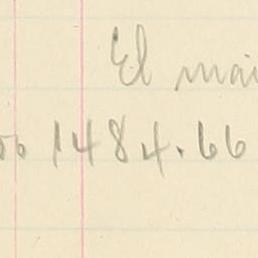 El mai
00 1484.66